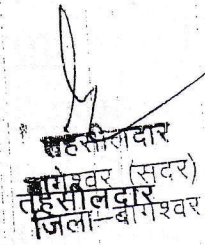 तहसीलदार
बागेश्वर (सदर)
तहसीलदार
जिला-बागेश्वर